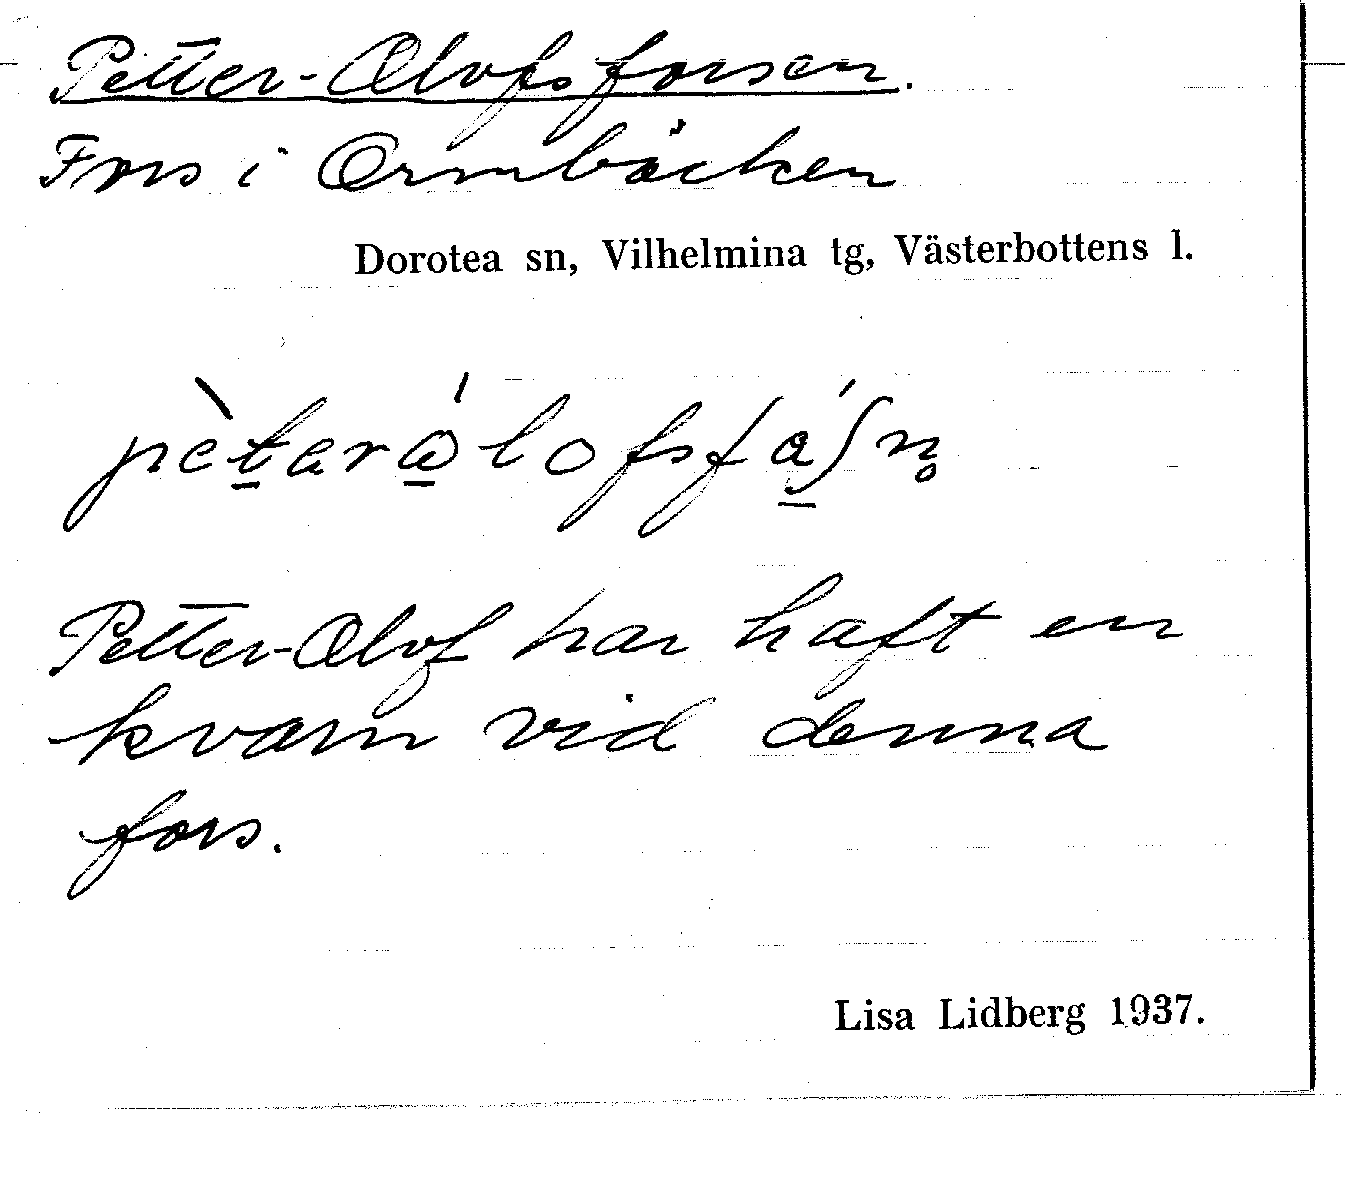 Petter-Olofsforsen.
Fors i Ormbäcken
Dorotea sn, Vilhelmina tg, Västerbottens l.
pèt̠ará̠lofsfá̠ʃn̥
Petter-Olof har haft en
kvarn vid denna
fors.
Lisa Lidberg 1937.